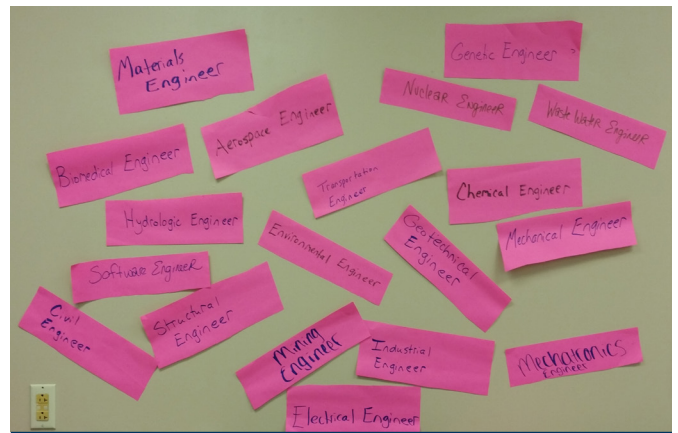 Materials
Engineer
Genetic Engineer
Nuclear Engineer
Waste Water Engineer
Aerospace Engineer
Biomedical Engineer
Transportation
Engineer
Chemical Engineer
Hydrologic Engineer
Geotechnical
Engineer
Mechanical Engineer
Environmental Engineer
Software Engineer
Structural
Engineer
Civil
Engineer
Mining
Engineer
Industrial
Engineer
Mechatronics
Engineer
Electrical Engineer